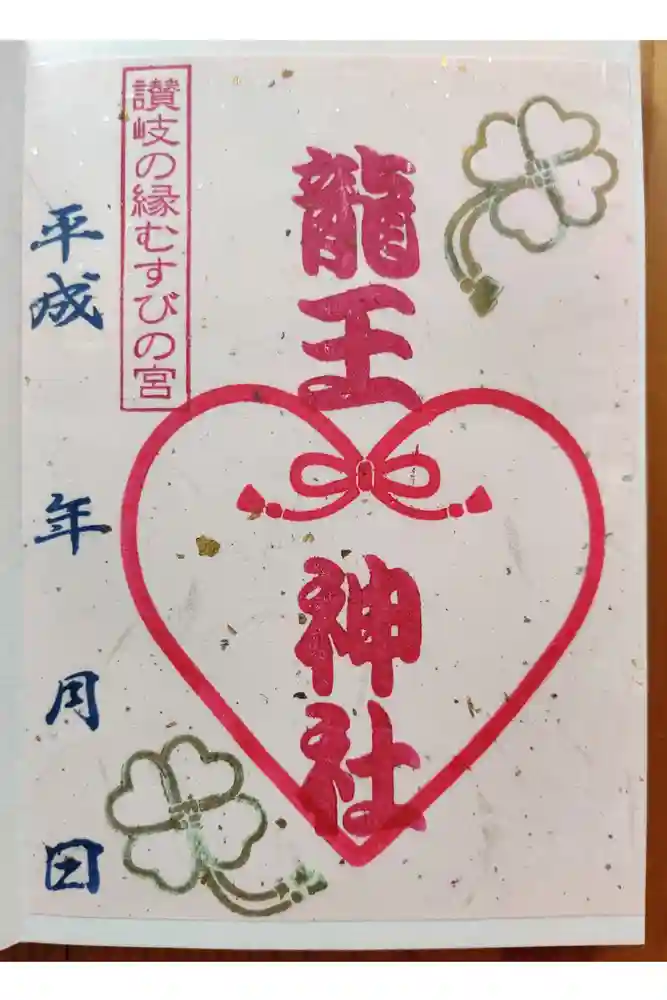 龍王神社
讃岐の縁むすびの宮
平成 年 月 田